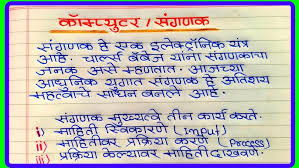 कॉम्प्युटर / संगणक
संगणक हे एक इलेक्ट्रॉनिक यंत्र
आहे. चार्ल्स बॅबेज यांना संगणकाचा
जनक असे म्हणतात. आजच्या
आधुनिक युगात संगणक हे अतिशय
महत्वाचे साधन बनले आहे.
संगणक मुख्यत्वे तीन कार्य करते.
i) माहिती स्विकारणे (Input)
ii) माहितीवर प्रक्रिया करणे (Process)
iii) प्रक्रिया केल्यावर माहिती दाखवणे